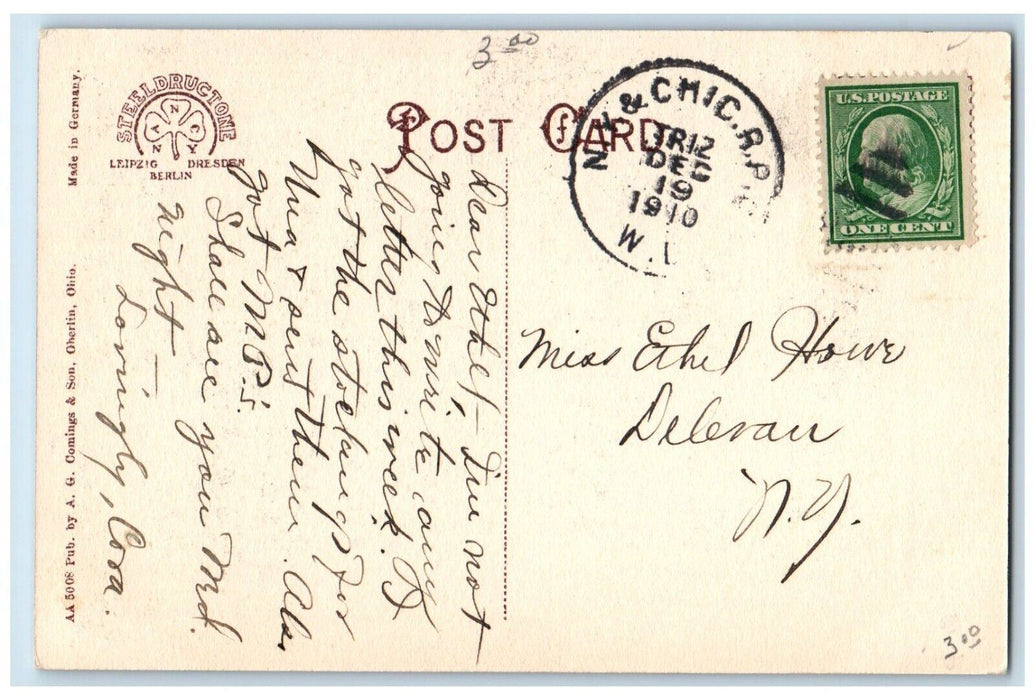 3 00
POST CARD
STEELDRUCTONE
A N C Y N
LEIPZIG DRESDEN
BERLIN
Made in Germany.
AA 5008 Pub. by A. G. Comings & Son, Oberlin, Ohio.
N.Y. & CHIC. R.P.
TR12
DEC
19
1910
W.D.
U.S. POSTAGE
ONE CENT
Dear Ethel, - I'm not
going to write any
letter this week. I
got the stockings for
Una & sent them. Also
got M.P.'s.
Shall see you Wed.
night -
Lovingly, Cora.
Miss Ethel Howe
Delevan
N.Y.
3.00